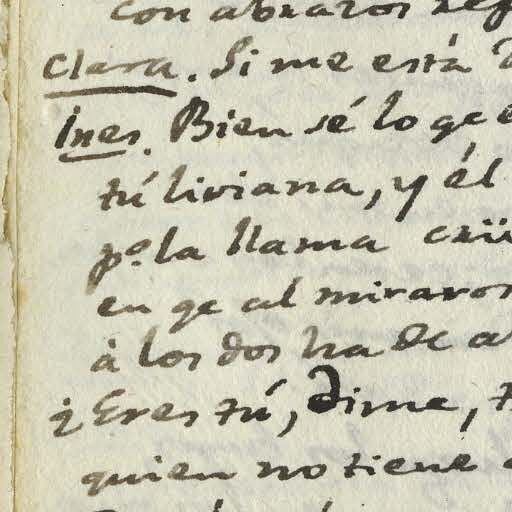 con abrazos
Clara. Si me está
Ines. Bien sé lo qe
tú liviana, y él
po. la llama
en qe al miraros
á los dos ha de
¿Eres tú, dime,
quien no tiene